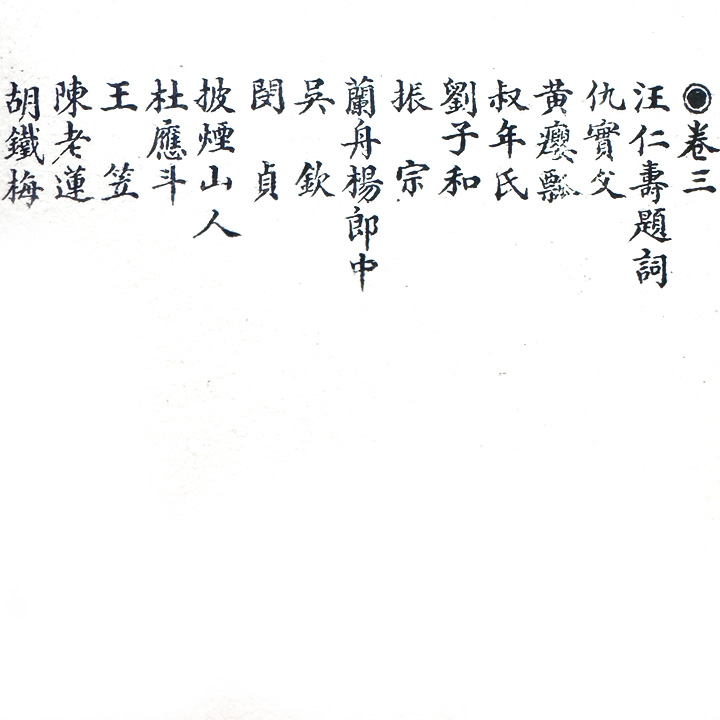 ◉卷三
汪仁壽題詞
仇實父
黃癭瓢
叔年氏
劉子和
振宗
蘭舟楊郎中
吳欽
閔貞
披煙山人
杜應斗
王笠
陳老蓮
胡鐵梅